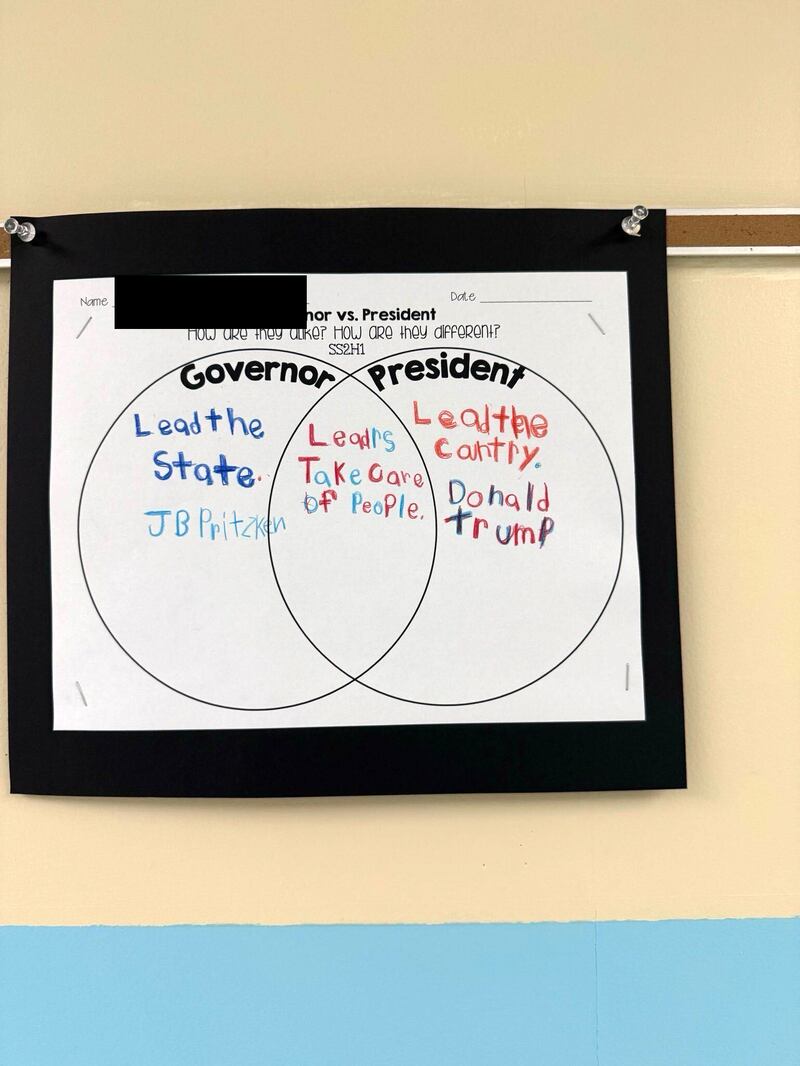 Name
Date
nor vs. President
How are they alike? How are they different?
SS2H1
Governor
President
Lead the
State.
JB Pritzken
Leadrs
Take Care
of People.
Lead the
cantry.
Donald
Trump